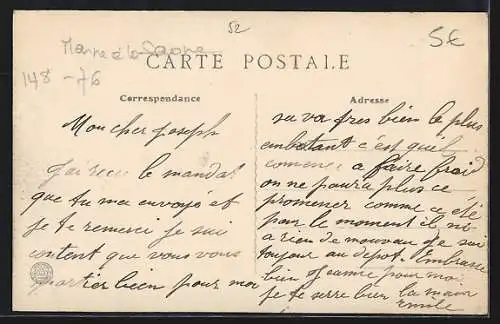 52
5€
Marne à la Saone
148 - 76
CARTE POSTALE
Correspondance
Mon cher Joseph
J'ai recu le mandat
que tu ma envoyé et
je te remerci je sui
content que vous vous
portier bien pour moi
Adresse
sa va fres bien le plus
embetant c'est quil
comence a faire froid
on ne poura plus ce
promener comme cé été
pour le moment il ni
a rien de nouveau je sui
toujour au depot. Embrasse
bien Jeanne pour moi
je te serre bien la main
Emile